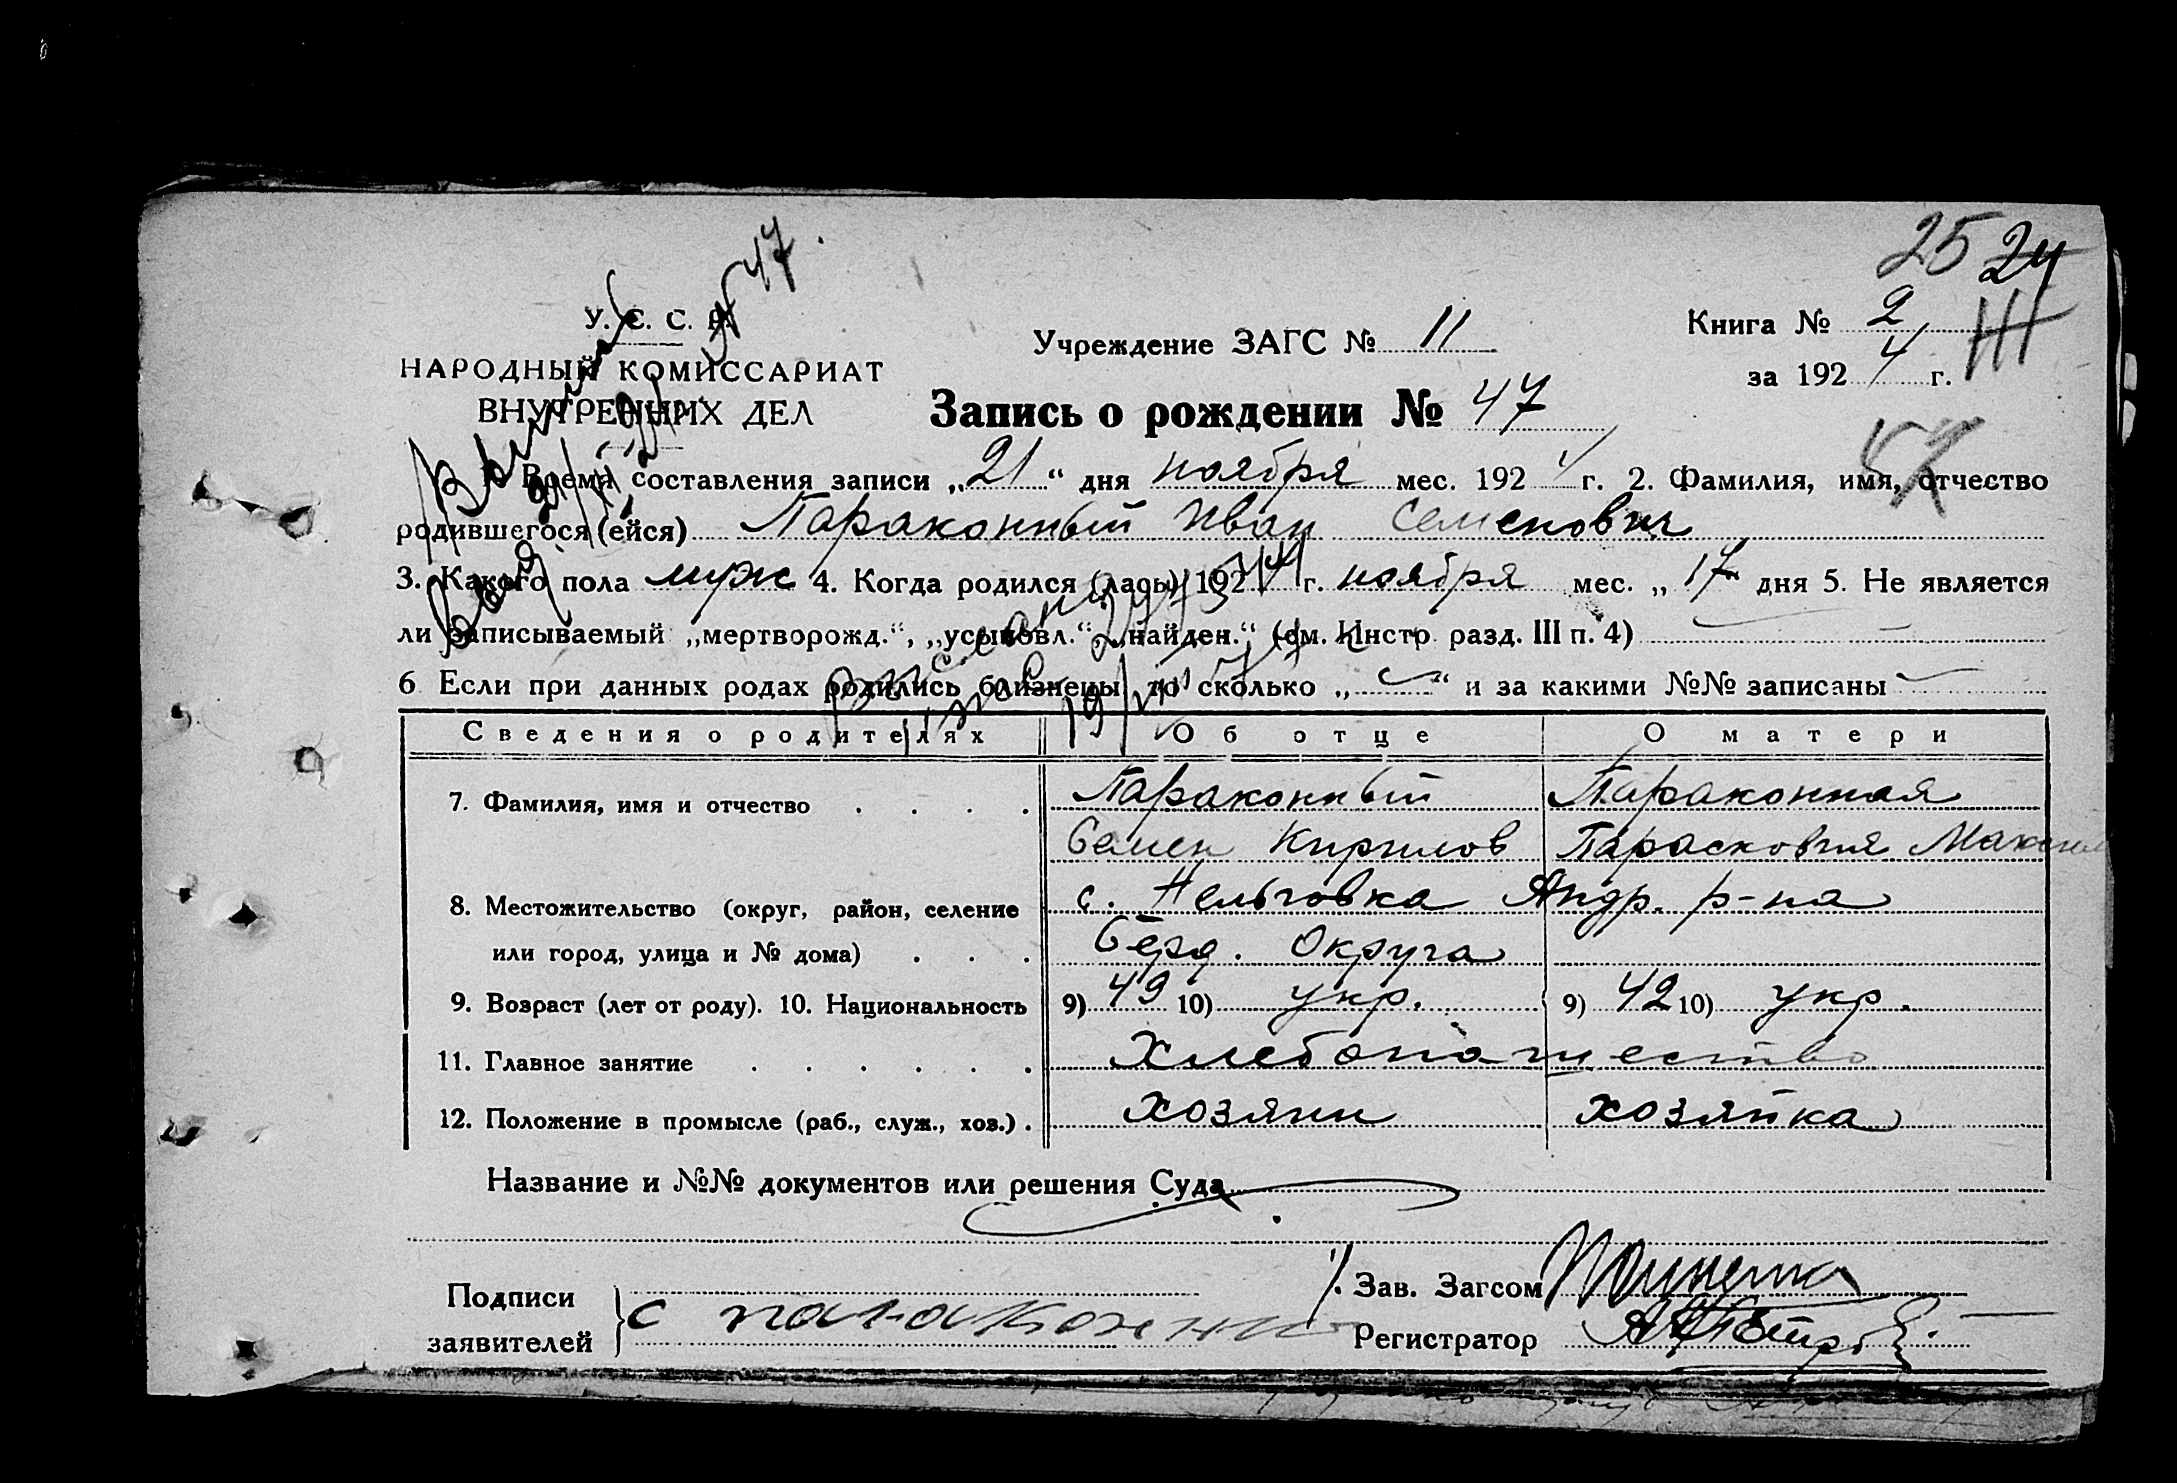 25 24
У. С. С. Р.
НАРОДНЫЙ КОМИССАРИАТ
ВНУТРЕННИХ ДЕЛ
№ 47.
Учреждение ЗАГС № 11
Книга № 2
за 1924 г.
Запись о рождении № 47
1. Время составления записи „21“ дня ноября мес. 1924 г. 2. Фамилия, имя, отчество
родившегося (ейся) Параконный Иван Семенович
3. Какого пола муж 4. Когда родился (лась) 1924 г. ноября мес. „17 дня 5. Не является
ли записываемый „мертворожд.“, „усыновл.“ „найден.“ (см. Инстр. разд. III п. 4)
6 Если при данных родах родились близнецы, то сколько „ — “ и за какими №№ записаны —
Сведения о родителях Об отце О матери
7. Фамилия, имя и отчество . . . . Параконный Параконная
Семен Кирилов Парасковия Максим
8. Местожительство (округ, район, селение с. Нельговка Андр. р-на
или город, улица и № дома) . . . Берд. Округа
9. Возраст (лет от роду). 10. Национальность 9) 49 10) укр. 9) 42 10) укр.
11. Главное занятие . . . . . . Хлебопашество
12. Положение в промысле (раб., служ., хоз.) . хозяин хозяйка
Название и №№ документов или решения Суда
Подписи
заявителей
с
Зав. Загсом
Регистратор